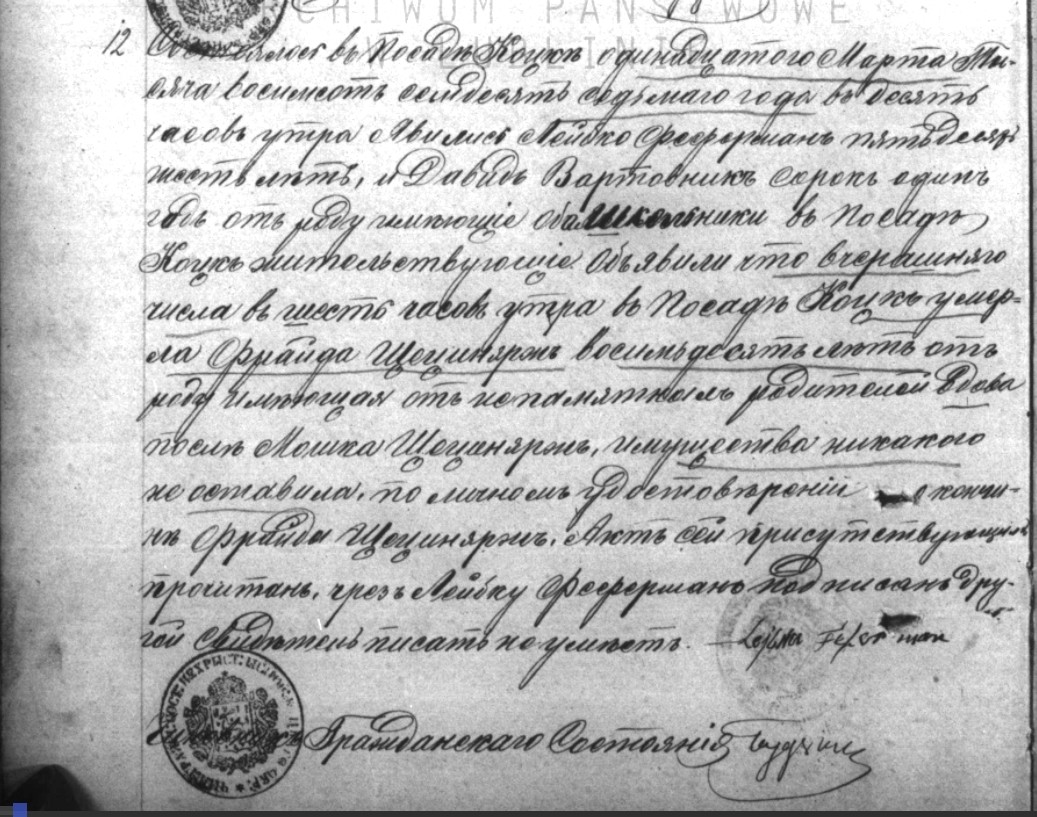 CHIWUM PAŃSTWOWE
12 Состоялось въ Посадѣ Коцкъ одинадцатого Марта Ты-
сяча восимсотъ семдесятъ седьмаго года въ десять
часовъ утра Явились Лейбко Феферманъ пятьдесятъ
шесть лѣтъ, и Давидъ Вартовникъ сорокъ одинъ
годъ отъ роду имѣющіе оба школьники въ Посадѣ
Коцкъ жительствующіе. Объявили что вчерашняго
числа въ шесть часовъ утра въ Посадѣ Коцкъ умер-
ла Фрайда Щециняржъ восимьдесятъ лѣтъ отъ
роду имѣющая отъ непамятныхъ родителей Вдова
послѣ Мошка Щециняржъ, имущества никакого
не оставила, по личномъ удостовѣреніи о кончи-
нѣ Фрайды Щециняржъ. Актъ сей присутствующимъ
прочитанъ, чрезъ Лейбку Феферманъ подписанъ дру-
гой свидѣтель писать не умѣетъ. Lejbka Feferman
Гражданскаго Состоянія